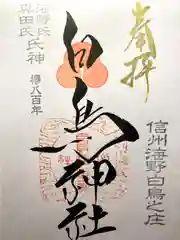 奉拝
信州海野白鳥之庄
白鳥神社
海野氏
真田氏
氏神
八百年